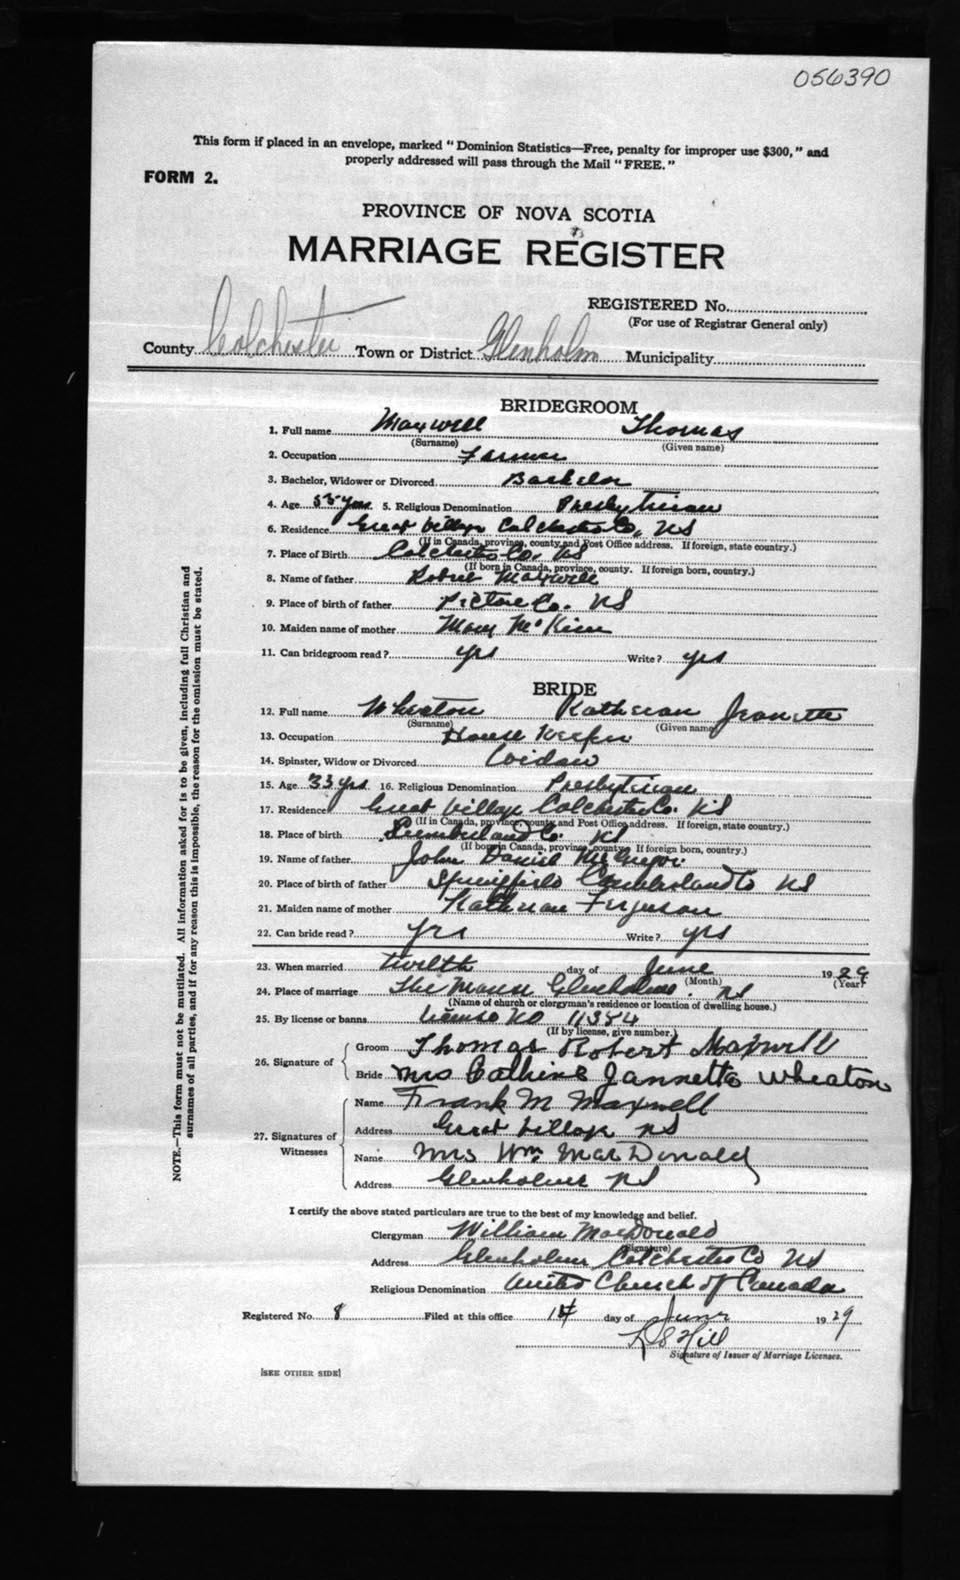 056390
This form if placed in an envelope, marked "Dominion Statistics—Free, penalty for improper use $300," and
properly addressed will pass through the Mail "FREE."
FORM 2.
PROVINCE OF NOVA SCOTIA
MARRIAGE REGISTER
REGISTERED No.
(For use of Registrar General only)
County Colchester Town or District Glenholm Municipality
BRIDEGROOM
1. Full name Maxwell Thomas
(Surname) (Given name)
2. Occupation Farmer
3. Bachelor, Widower or Divorced Bachelor
4. Age yrs 5. Religious Denomination Presbyterian
6. Residence Great Village Colchester Co, NS
(If in Canada, province, county and Post Office address. If foreign, state country.)
7. Place of Birth Colchester Co. NS
(If born in Canada, province, county. If foreign born, country.)
8. Name of father Robert Maxwell
9. Place of birth of father Pictou Co. NS
10. Maiden name of mother Mary
11. Can bridegroom read? yes Write? yes
BRIDE
12. Full name Wheaton Katherean Jeanette
(Surname) (Given name)
13. Occupation House Keeper
14. Spinster, Widow or Divorced Widow
15. Age 33 yrs 16. Religious Denomination Presbyterian
17. Residence Great Village Colchester Co. NS
(If in Canada, province, county and Post Office address. If foreign, state country.)
18. Place of birth Cumberland Co. NS
(If born in Canada, province, county. If foreign born, country.)
19. Name of father John Daniel McGregor
20. Place of birth of father Springfield Cumberland Co NS
21. Maiden name of mother Katherean Ferguson
22. Can bride read? yes Write? yes
23. When married twelth day of June 1929
(Month) (Year)
24. Place of marriage The Manse Glenholme. NS
(Name of church or clergyman's residence or location of dwelling house.)
25. By license or banns License No 11384
(If by license, give number.)
26. Signature of Groom Thomas Robert Maxwell
Bride Mrs Cathine Jannetta Wheaton
27. Signatures of Witnesses Name Frank M Maxwell
Address Great Village NS
Name Mrs Wm MacDonald
Address Glenholme NS
I certify the above stated particulars are true to the best of my knowledge and belief.
Clergyman William MacDonald
(Signature)
Address Glenholme Colchester Co NS
Religious Denomination United Church of Canada
Registered No. 8 Filed at this office day of June 1929
Hill
Signature of Issuer of Marriage Licenses.
[SEE OTHER SIDE]
NOTE.—This form must not be mutilated. All information asked for is to be given, including full Christian and
surnames of all parties, and if for any reason this is impossible, the reason for the omission must be stated.